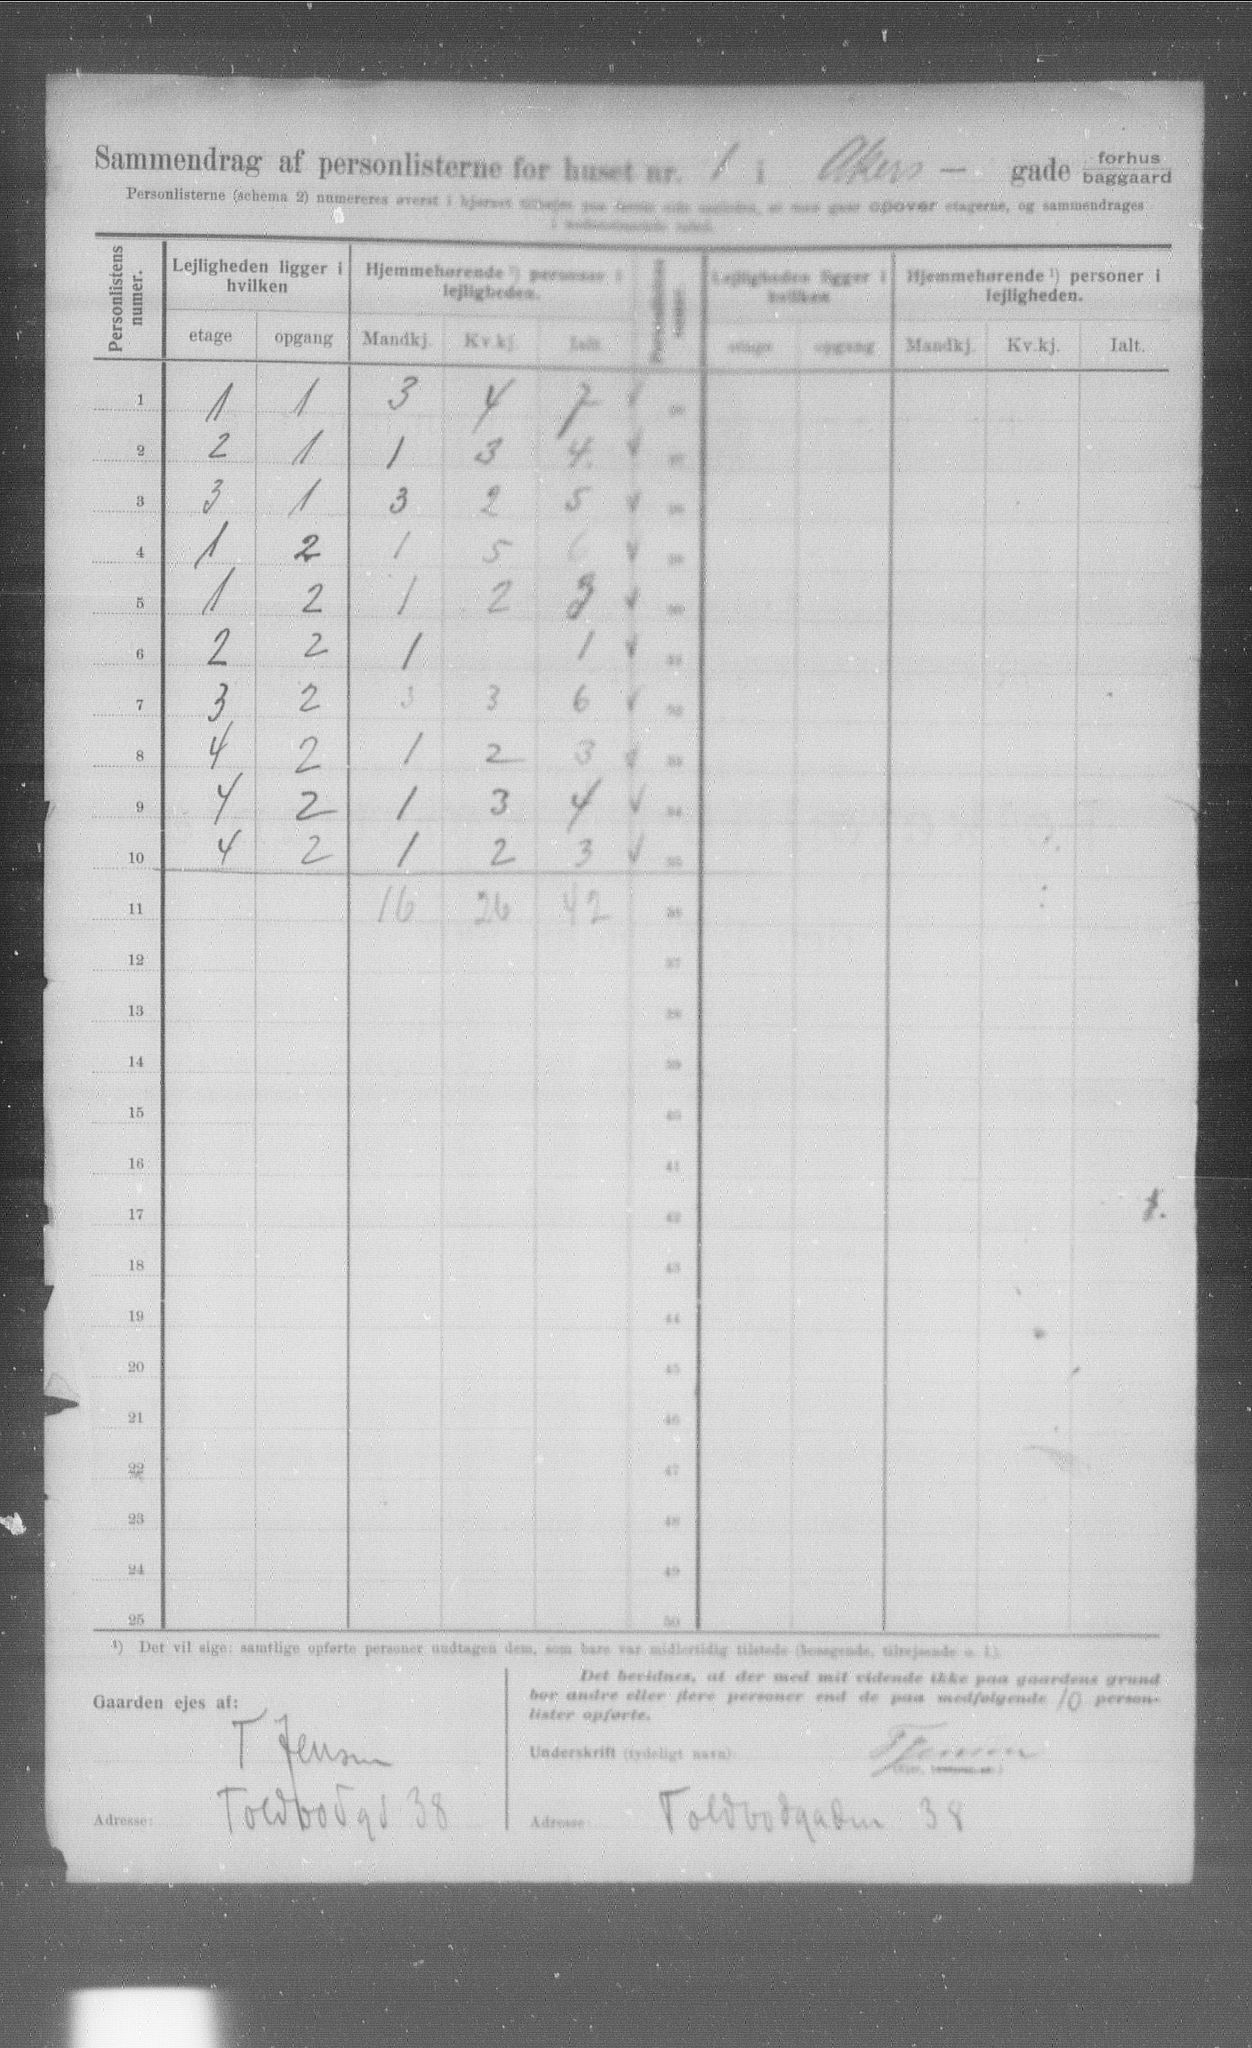 Sammendrag af personlisterne for huset nr. 1 i Akers — gade forhus
baggaard
Personlisterne (schema 2) numereres øverst i hjørnet opover etagerne, og sammendrages
Personlistens numer.
Lejligheden ligger i hvilken
Hjemmehørende ¹) personer i lejligheden.
Personlistens numer.
Lejligheden ligger i hvilken
Hjemmehørende ¹) personer i lejligheden.
etage opgang Mandkj. Kv.kj. Ialt. etage opgang Mandkj. Kv.kj. Ialt.
1 1 1 3 4 7 26
2 2 1 1 3 4. 27
3 3 1 3 2 5 28
4 1 2 1 5 6 29
5 1 2 1 2 3 30
6 2 2 1 1 31
7 3 2 3 3 6 32
8 4 2 1 2 3 33
9 4 2 1 3 4 34
10 4 2 1 2 3 35
11 16 26 42 36
12 37
13 38
14 39
15 40
16 41
17 42
18 43
19 44
20 45
21 46
22 47
23 48
24 49
25 50
¹) Det vil sige: samtlige opførte personer undtagen dem, som bare var midlertidig tilstede (besøgende, tilrejsende o. l.).
Gaarden ejes af:
T Jensen
Adresse: Toldbodgd 38
Det bevidnes, at der med mit vidende ikke paa gaardens grund
bor andre eller flere personer end de paa medfølgende 10 person-
lister opførte.
Underskrift (tydeligt navn): T Jensen
(Ejer, bestyrer etc.)
Adresse: Toldbodgaden 38